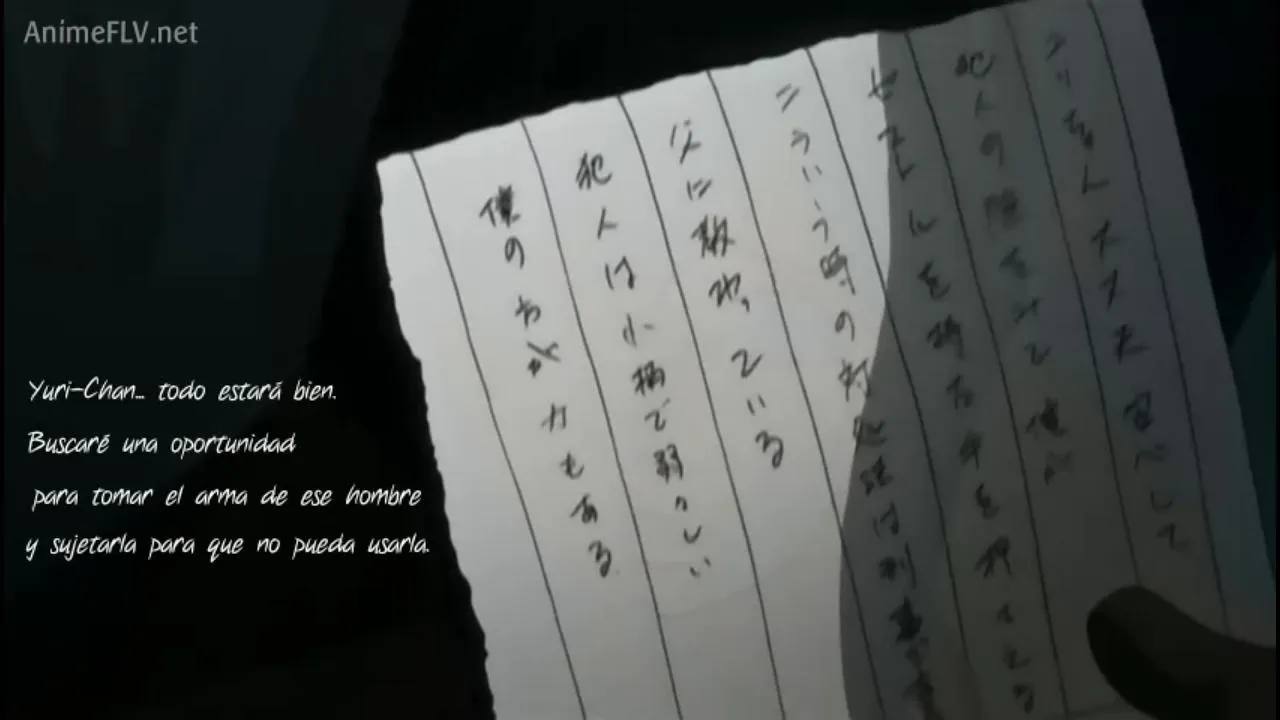 AnimeFLV.net
Yuri-Chan... todo estará bien.
Buscaré una oportunidad
para tomar el arma de ese hombre
y sujetarla para que no pueda usarla.
ユリちゃん大丈夫安心して
犯人の隙をみて僕が
を持つ手を押さえる
こういう時の は刑事の
父に教わっている
犯人は小柄で弱々しい
僕の方が力もある